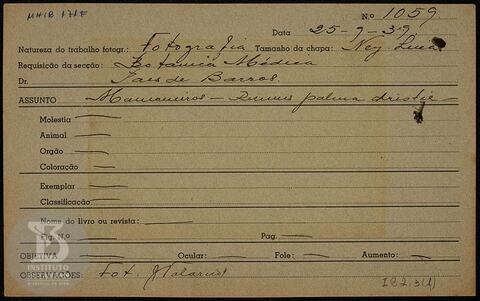 N.o 1059
Data 25-9-39
Natureza do trabalho fotogr.: Fotografia Tamanho da chapa: Neg. Leica
Requisição da secção: Botanica Médica
Dr. Paes de Barros
ASSUNTO Mamoneiros — palma christi —
Molestia
Animal
Orgão
Coloração
Exemplar
Classificação
Nome do livro ou revista:
Fig. N.o Pag.
OBJETIVA Ocular: Fole: Aumento:
OBSERVAÇÕES: Fot.
INSTITUTO